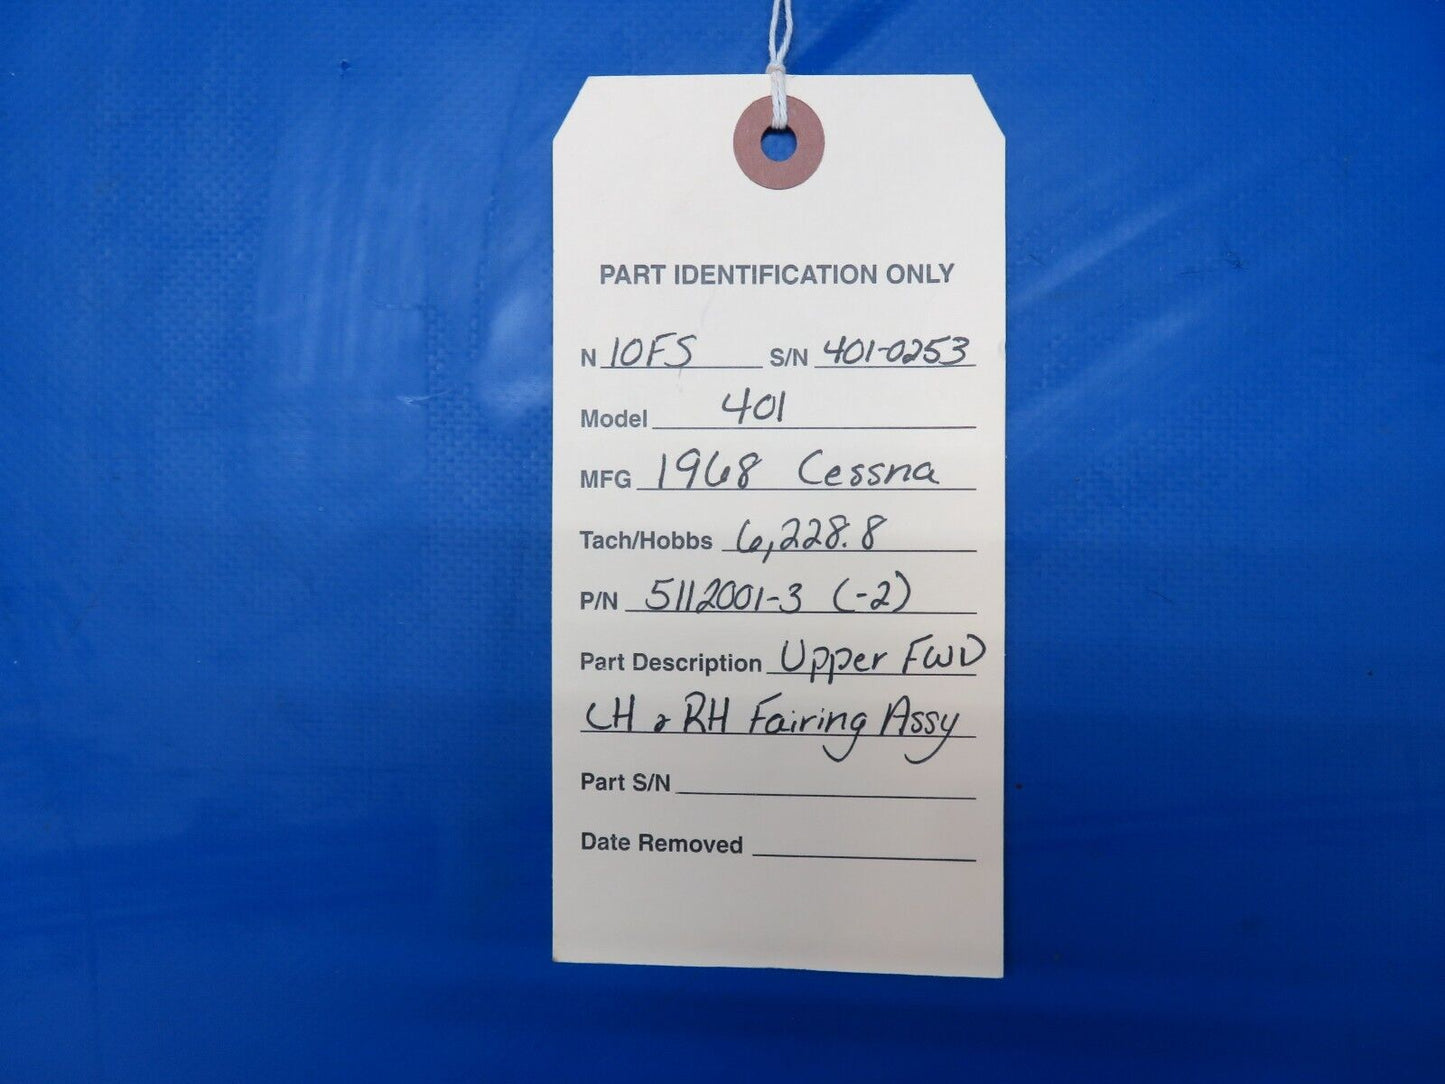 PART IDENTIFICATION ONLY
N 10FS S/N 401-0253
Model 401
MFG 1968 Cessna
Tach/Hobbs 6,228.8
P/N 5112001-3 (-2)
Part Description Upper FWD
LH & RH Fairing Assy
Part S/N
Date Removed